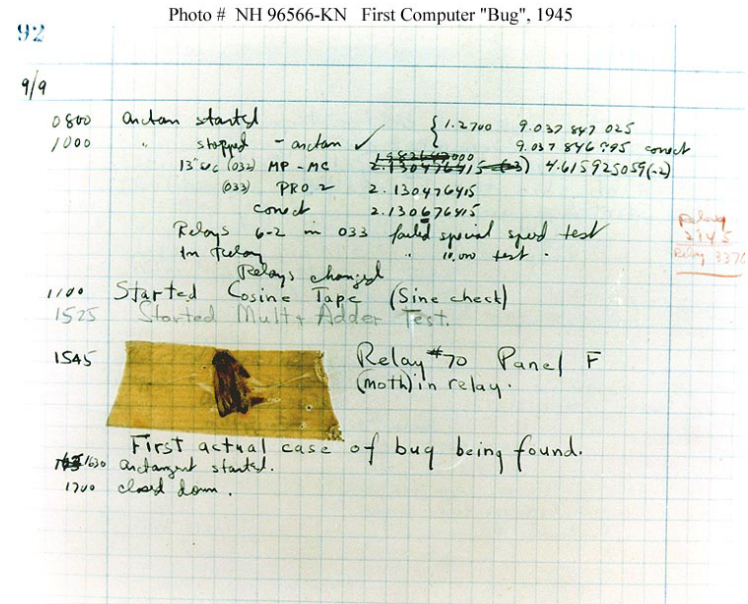 Photo # NH 96566-KN First Computer "Bug", 1945
92
9/9
0800 antan started
1000 " stopped - antan ✓ { 1.2700 9.037 847 025
9.037 846 995 conect
13"uc (032) MP - MC 1.982647000 2.130476415 (-3) 4.615925059(-2)
(033) PRO 2 2.130476415
conect 2.130676415
Relays 6-2 in 033 failed special speed test
in Relay " 10,000 test .
Relays changed
Relay
2145
Relay 3370
1100 Started Cosine Tape (Sine check)
1525 Started Mult+ Adder Test.
1545 Relay #70 Panel F
(moth) in relay.
First actual case of bug being found.
1630 antangent started.
1700 closed down.